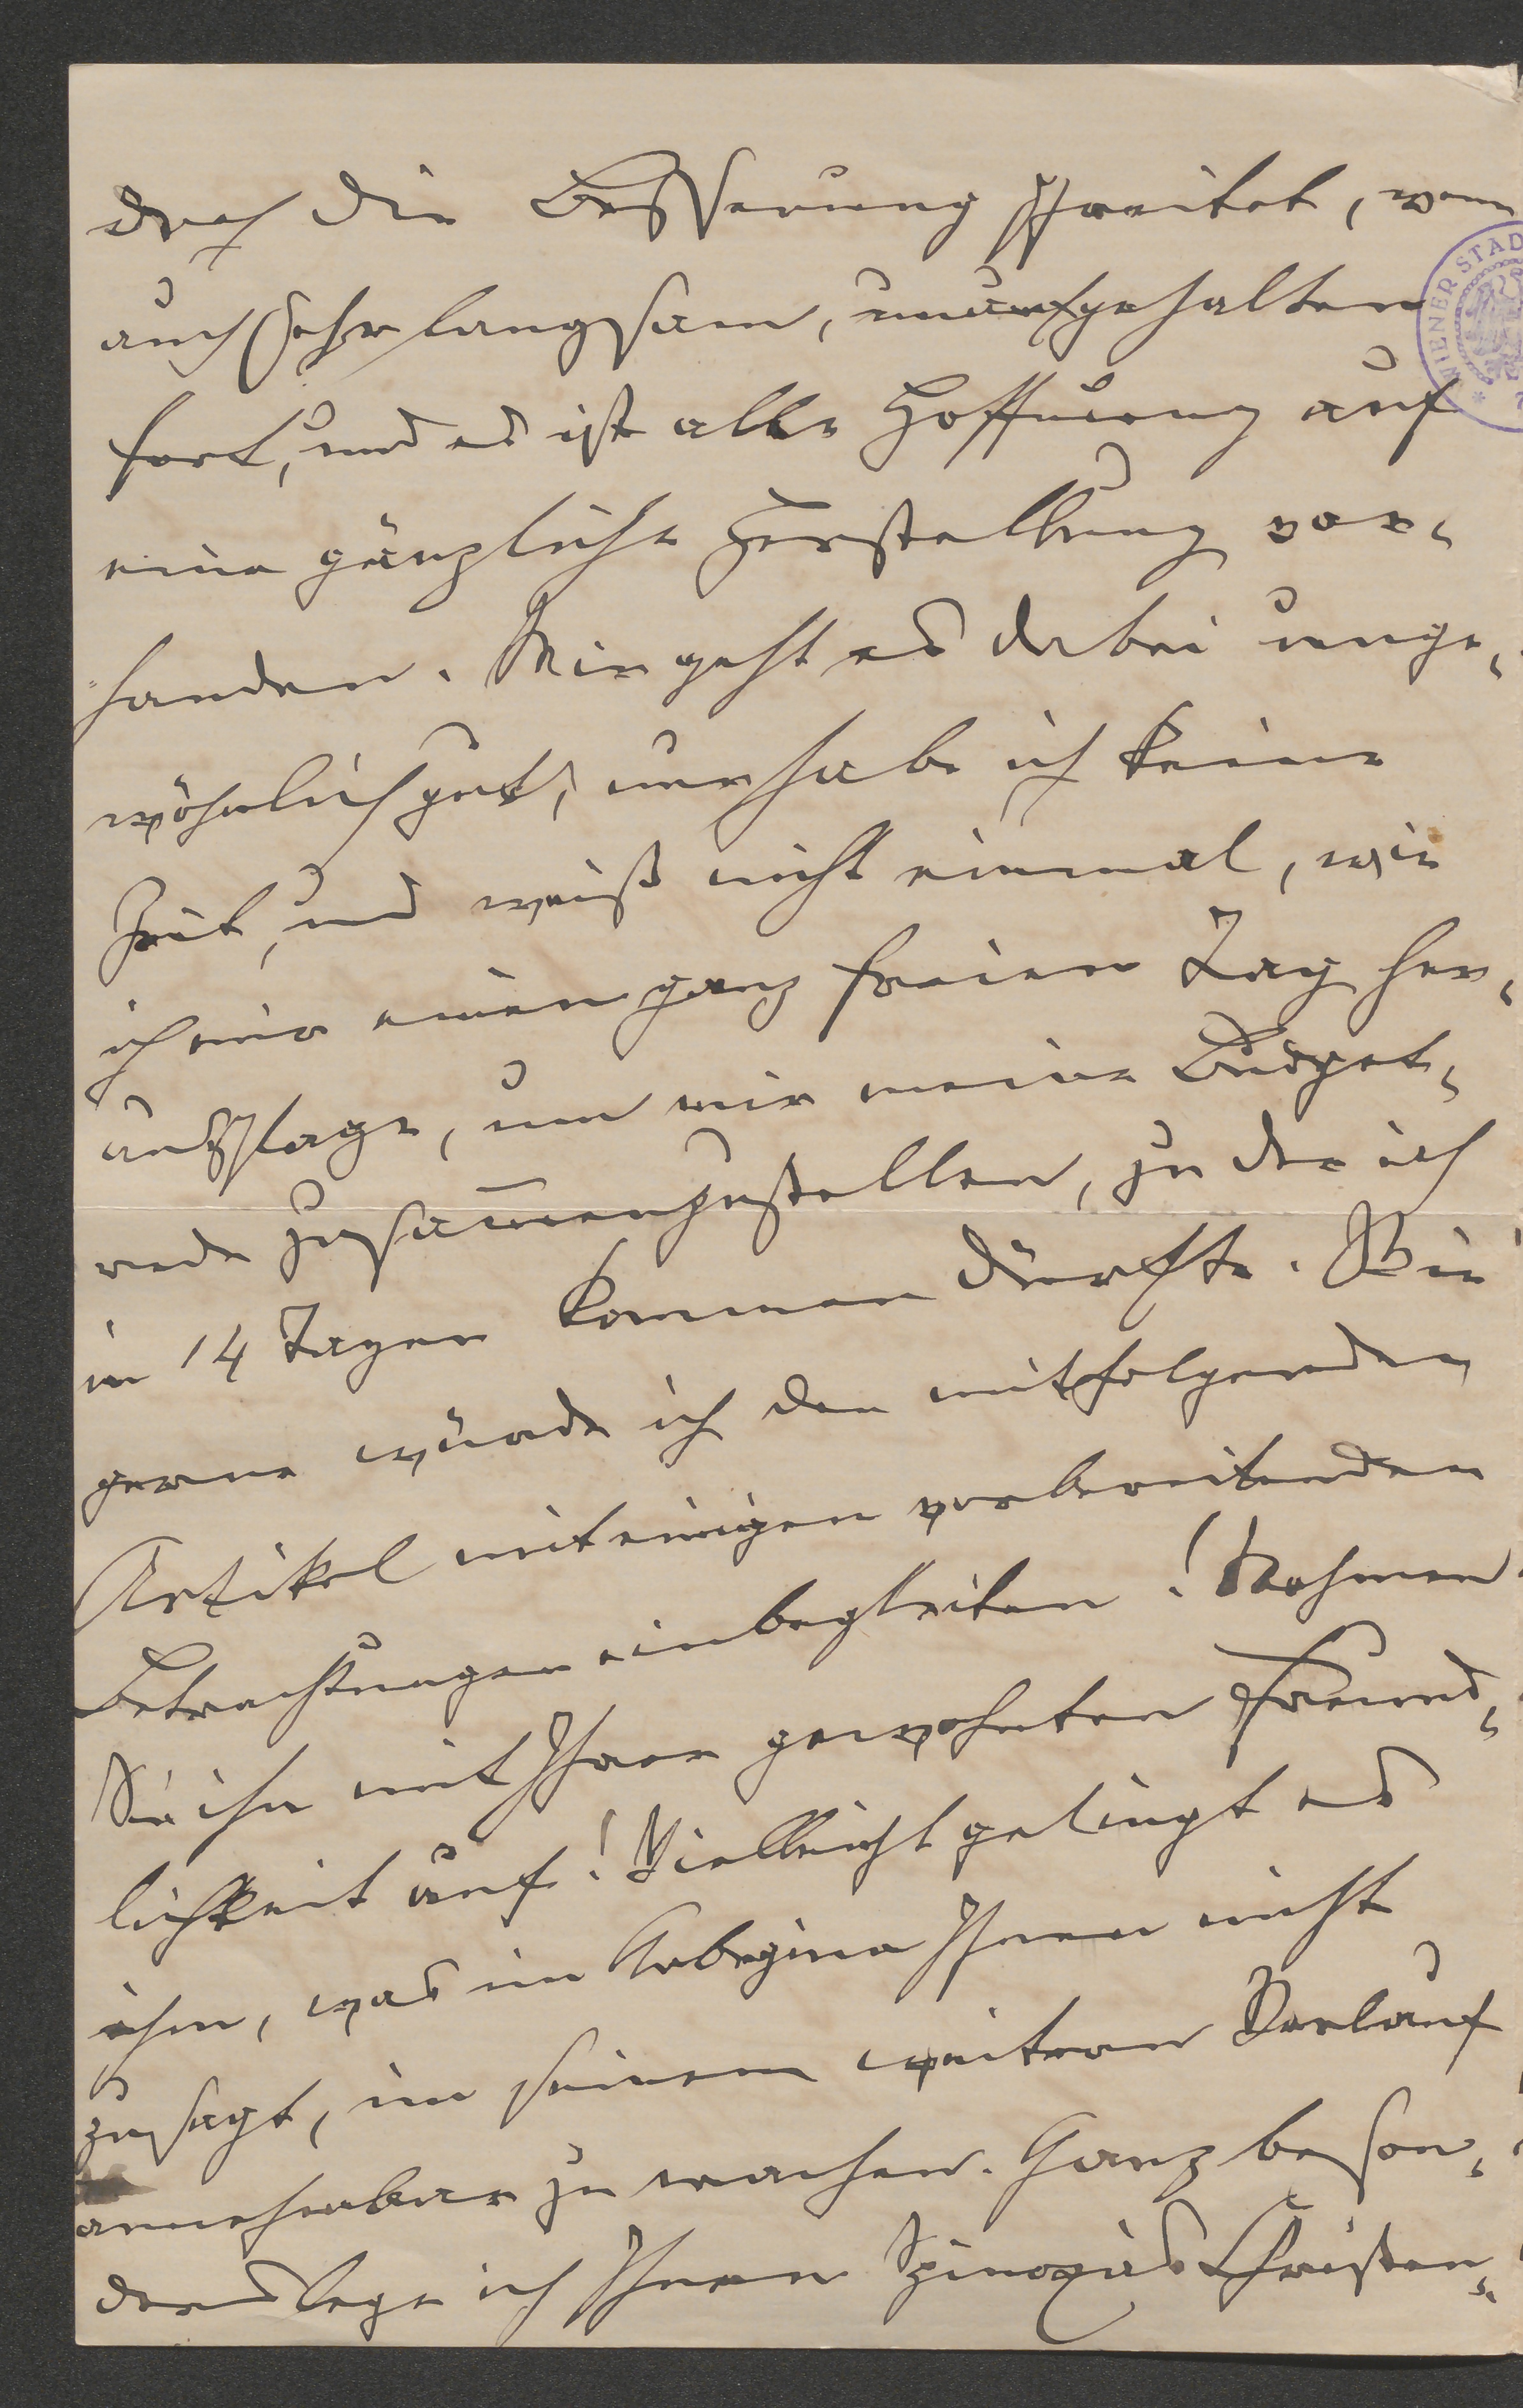 doch die Besserung schreitet, wenn
auch sehr langsam, unaufgehalten
fort, und es ist alle Hoffnung auf
eine gänzliche Herstellung vor-
handen. Mir geht es dabei unge-
wöhnlich gut, nur habe ich keine
Zeit, und weiß nicht einmal, wie
ich mir einen ganz freien Tag her-
ausschlage, um mir meine Budget-
rede zusam̅enzustellen, zu der ich
in 14 Tagen kommen dürfte. Wie
gerne würde ich den mitfolgenden
Artikel mit einigen vorbereitenden
Betrachtungen einbegleiten! Nehmen
Sie ihn mit Ihrer gewohnten Freund-
lichkeit auf! Vielleicht gelingt es
ihm, was im Anbeginn Ihnen nicht
zusagt, im seinem weitern Verlauf
annehmbar zu machen. Ganz beson-
ders lege ich Ihnen Spinoza's Christen-
WIENER STAD